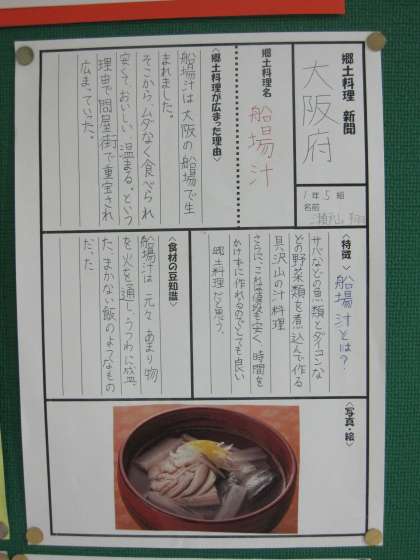 郷土料理 新聞
大阪府
1年 5組
名前
郷土料理名
船場汁
〈郷土料理が広まった理由〉
船場汁は大阪の船場で生
まれました。
そこからムダなく食べられ
安くておいしい、温まる。という
理由で問屋街で重宝され
広まっていった。
〈特徴〉
船場汁とは?
サバなどの魚類とダイコンな
どの野菜類を煮込んで作る
具沢山の汁料理
さらに、これは値段も安く、時間を
かけずに作れるのでとても良い
郷土料理だと思う。
〈食材の豆知識〉
船場汁は元々あまり物
を火を通し、うつわに盛
たまかない飯のようなもの
だった
〈写真・絵〉